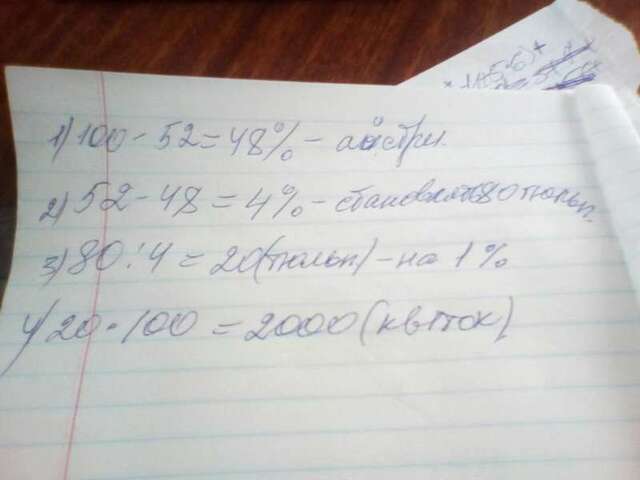 1) 100 - 52 = 48% - айстри.
2) 52 - 48 = 4% - становлять 80 тюльп.
3) 80 : 4 = 20 (тюльп) - на 1%
4) 20 · 100 = 2000 (квіток)